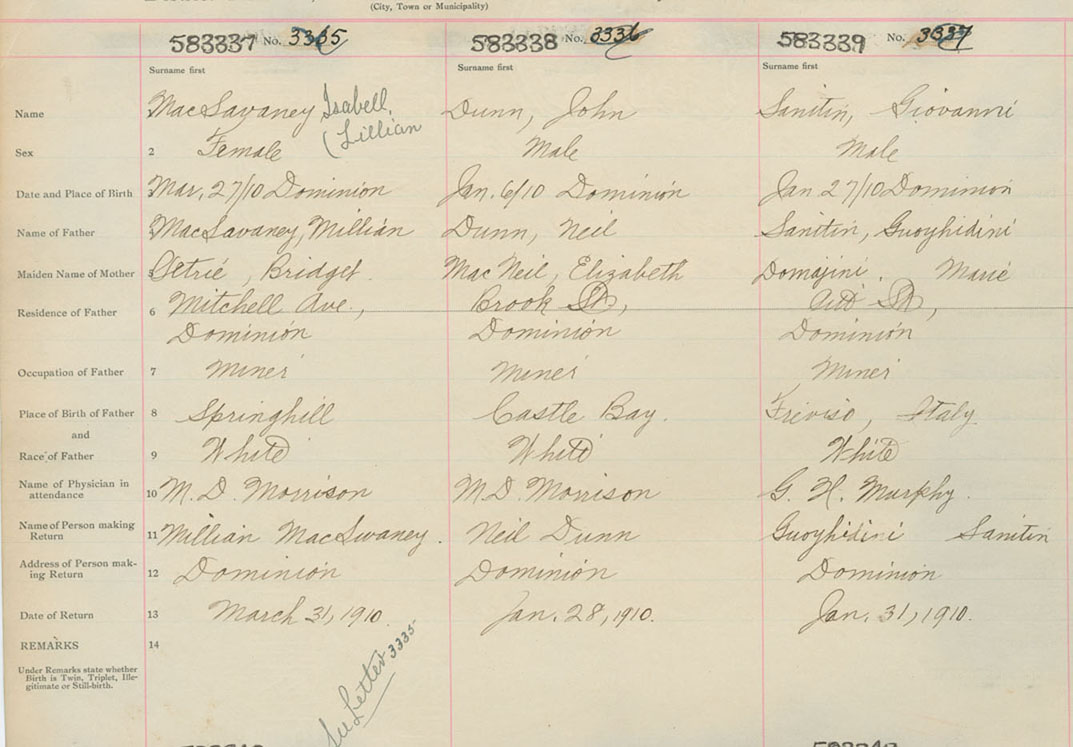 (City, Town or Municipality)
583337 No. 3335 583338 No. 3336 583339 No. 3337
Surname first Surname first Surname first
Name MacSavaney Isabell, Dunn, John Sanitin, Giovanni
(Lillian
Sex 2 Female Male Male
Date and Place of Birth 3 Mar, 27/10 Dominion Jan. 6/10 Dominion Jan 27/10 Dominion
Name of Father MacSavaney, Millian Dunn, Neil Sanitin, Guoyhidini
Maiden Name of Mother 5 Petrie, Bridget. MacNeil, Elizabeth Domajini. Marie
Residence of Father 6 Mitchell Ave., Brook St, St,
Dominion Dominion Dominion
Occupation of Father 7 Miner Miner Miner
Place of Birth of Father 8 Springhill Castle Bay. Treviso, Italy.
and
Race of Father 9 White White White
Name of Physician in
attendance 10 M. D. Morrison M. D. Morrison G. H. Murphy.
Name of Person making
Return 11 Millian MacSwaney. Neil Dunn Guoyhidini Sanitin
Address of Person mak-
ing Return 12 Dominion Dominion Dominion
Date of Return 13 March 31, 1910. Jan. 28, 1910. Jan. 31, 1910.
REMARKS 14
Under Remarks state whether
Birth is Twin, Triplet, Ille-
gitimate or Still-birth.
See Letter 3335